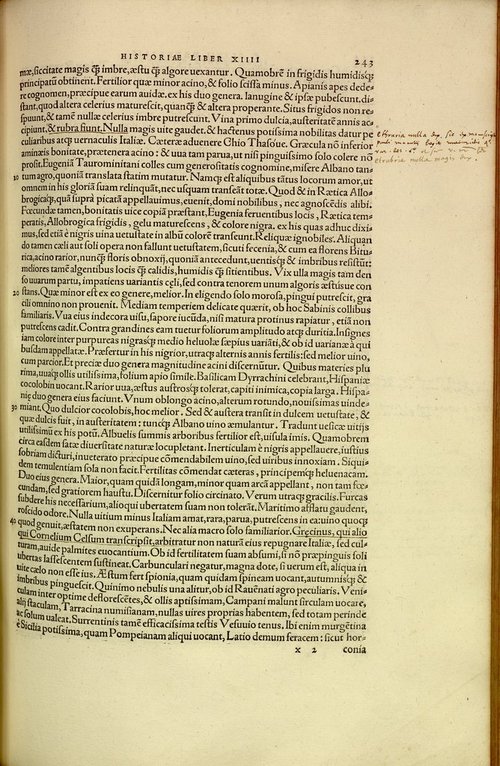 HISTORIAE LIBER XIIII
243
mæ, siccitate magis q̃ imbre, æstu q̃ algore uexantur. Quamobrẽ in frigidis humidisq;
principatũ obtinent. Fertilior quæ minor acino, & folio scissa minus. Apianis apes dede-
re cognomen, præcipue earum auidæ. ex his duo genera. lanugine & ipsæ pubescunt. di-
stant, quod altera celerius maturescit, quanq̃ & altera properante. Situs frigidos non re-
spuunt, & tamẽ nullæ celerius imbre putrescunt. Vina primo dulcia, austeritatẽ annis ac-
cipiunt, & rubra fiunt. Nulla magis uite gaudet. & hactenus potissima nobilitas datur pe
culiaribus atq; uernaculis Italiæ. Cæteræ aduenere Ghio Thasóue. Græcula nõ inferior
aminæis bonitate, prætenera acino: & uua tam parua, ut nisi pinguissimo solo colere nõ
prosit. Eugeniã Taurominitani colles cum generositatis cognomine, misere Albano tan-
10 tum agro, quoniã translata statim mutatur. Namq; est aliquibus tãtus locorum amor, ut
omnem in his gloriã suam relinquãt, nec usquam transeãt totæ. Quod & in Rætica Allo-
brogicaq;, quã supra picatã appellauimus, euenit, domi nobilibus, nec agnoscẽdis alibi.
Fœcundæ tamen, bonitatis uice copiã præstant, Eugenia feruentibus locis, Rætica tem-
peratis, Allobrogica frigidis, gelu maturescens, & colore nigra. ex his quas adhuc dixi-
mus, sed etiã è nigris uina uetustate in albũ colorẽ transeunt. Reliquæ ignobiles. Aliquan
do tamen cæli aut soli opera non fallunt uetustatem, sicuti fecenia, & cum ea florens Bitu-
rica, acino rarior, nunq̃ floris obnoxij, quoniã antecedunt, uentisq; & imbribus resistũt:
meliores tamẽ algentibus locis q̃ calidis, humidis q̃ sitientibus. Vix ulla magis tam den
so uuarum partu, impatiens uariantis cęli, sed contra tenorem unum algoris æstusue con
20 stans. Quæ minor est ex eo genere, melior. In eligendo solo morosa, pingui putrescit, gra
cili omnino non prouenit. Mediam temperiem delicate quærit, ob hoc Sabinis collibus
familiaris. Vua eius indecora uisu, sapore iucũda, nisi matura protinus rapiatur, etiã non
putrescens cadit. Contra grandines eam tuetur foliorum amplitudo atq; duritia. Insignes
iam colore inter purpureas nigrasq; medio heluolæ sæpius uariãti, & ob id uarianæ à qui
busdam appellatæ. Præfertur in his nigrior, utraq; alternis annis fertilis: sed melior uino,
cum parcior. Et preciæ duo genera magnitudine acini discernũtur. Quibus materies plu
rima, uuaq; ollis utilissima, folium apio simile. Basilicam Dyrrachini celebrant, Hispaniæ
cocolobin uocant. Rarior uua, æstus austrosq; tolerat, capiti inimica, copia larga. Hispa-
nię duo genera eius faciunt. Vnum oblongo acino, alterum rotundo, nouissimas uinde-
30 miant. Quo dulcior cocolobis, hoc melior. Sed & austera transit in dulcem uetustate, &
quæ dulcis fuit, in austeritatem: tuncq; Albano uino æmulantur. Tradunt uesicæ uitijs
utilissimũ ex his potũ. Albuelis summis arboribus fertilior est, uisula imis. Quamobrem
circa easdem satæ diuersitate naturæ locupletant. Inerticulam è nigris appellauere, iustius
sobriam dicturi, inueterato præcipue cõmendabilem uino, sed uiribus innoxiam. Siqui-
dem temulentiam sola non facit. Fertilitas cõmendat cæteras, principemq; helueNacam.
Duo eius genera. Maior, quam quidã longam, minor quam arcã appellant, non tam fœ-
cundam, sed gratiorem haustu. Discernitur folio circinato. Verum utraq; gracilis. Furcas
subdere his necessarium, alioqui ubertatem suam non tolerãt. Maritimo afflatu gaudent,
roscido odere. Nulla uitium minus Italiam amat, rara, parua, putrescens in ea: uino quoq;
40 quod genuit, æstatem non exuperans. Nec alia macro solo familiarior. Grecinus, qui alio
qui Cornelium Celsum transcripsit, arbitratur non naturã eius repugnare Italiæ, sed cul-
turam, auide palmites euocantium. Ob id fertilitatem suam absumi, si nõ præpinguis soli
ubertas lassescentem sustineat. Carbunculari negatur, magna dote, si uerum est, aliqua in
uite cælo non esse ius. Æstum fert spionia, quam quidam spineam uocant, autumnisq; &
imbribus pinguescit. Quinimo nebulis una alitur, ob id Rauenãti agro peculiaris. Veni-
culam inter optime deflorescẽtes, & ollis aptissimam, Campani malunt sirculam uocare,
alij staculam, Tarracina numisianam, nullas uires proprias habentem, sed totam perinde
ac solum ualeat. Surrentinis tamẽ efficacissima testis Vesuuio tenus. Ibi enim murgẽtina
è Sicilia potissima, quam Pompeianam aliqui uocant, Latio demum feracem: sicut hor-
x 2 conia